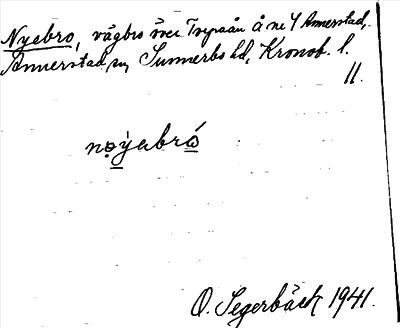 Nyebro, vägbro över Torpaån å nr 4 Annerstad,
Annerstad sn, Sunnerbo hd, Kronob. l.
11.
nøyabró
O. Segerbäck 1941.